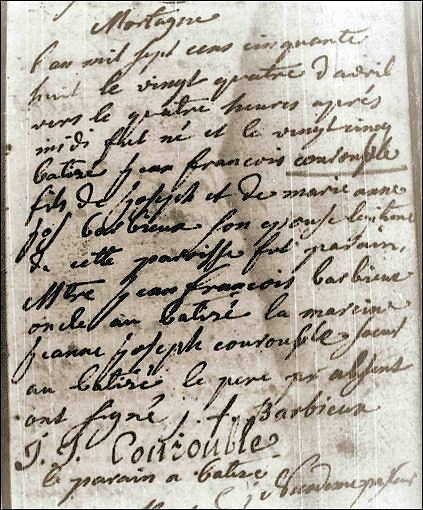 Mortagne
l'an mil sept cens cinquante
huit le vingt quatre d'avril
vers le quatre heures après
midi fut né et le vingt cinq
batizé jean françois couroupble
fils de joseph et de marie anne
jos barbieux son epouse
de cette paroisse fut parain,
Mtre jean françois barbieux
oncle au batizé la mareine
jeanne joseph courouple soeur
au batizé le pere pr absent
ont signé j. f. Barbieux
J. J. Courouble
le parain a batizé